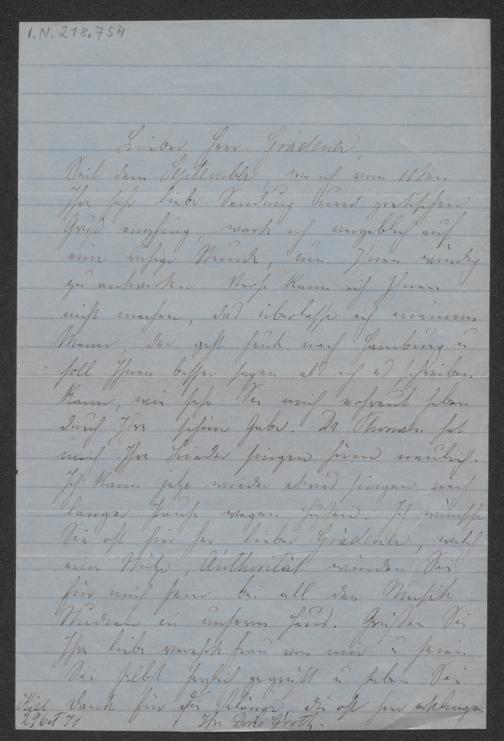 I.N. 218.754
Lieber Herr Grädener,
Seit dem September, wo ich vom 10ten
Ihre sehr liebe Sendung und poetischen
Gruß empfing, warte ich vergeblich auf
eine ruhige Stunde, um Ihnen würdig
zu antworten. Verse kann ich Ihnen
nicht machen, das überlasse ich meinem
Mann, der geht heut nach Hamburg u
soll Ihnen besser sagen als ich es schreiben
kann, wie sehr Sie mich erfreut haben
durch Ihre schöne Gabe. Dr Thomsen hat
mich Ihre Lieder singen hören neulich.
Ich kann jetzt wieder etwas singen nach
langer Pause wegen Husten. Ich wünsche
Sie oft hier her lieber Grädener, welch
eine Stütze, Authorität würden Sie
für mich sein bei all den Musik
Studien in unserem Haus. Grüßen Sie
Ihre liebe Frau von mir u seien
Sie selbst herzlich gegrüßt u haben Sie
Dank für die Klänge, die oft hier erklingen
Kiel
29 Oct 71
Ihre Doris Groth.